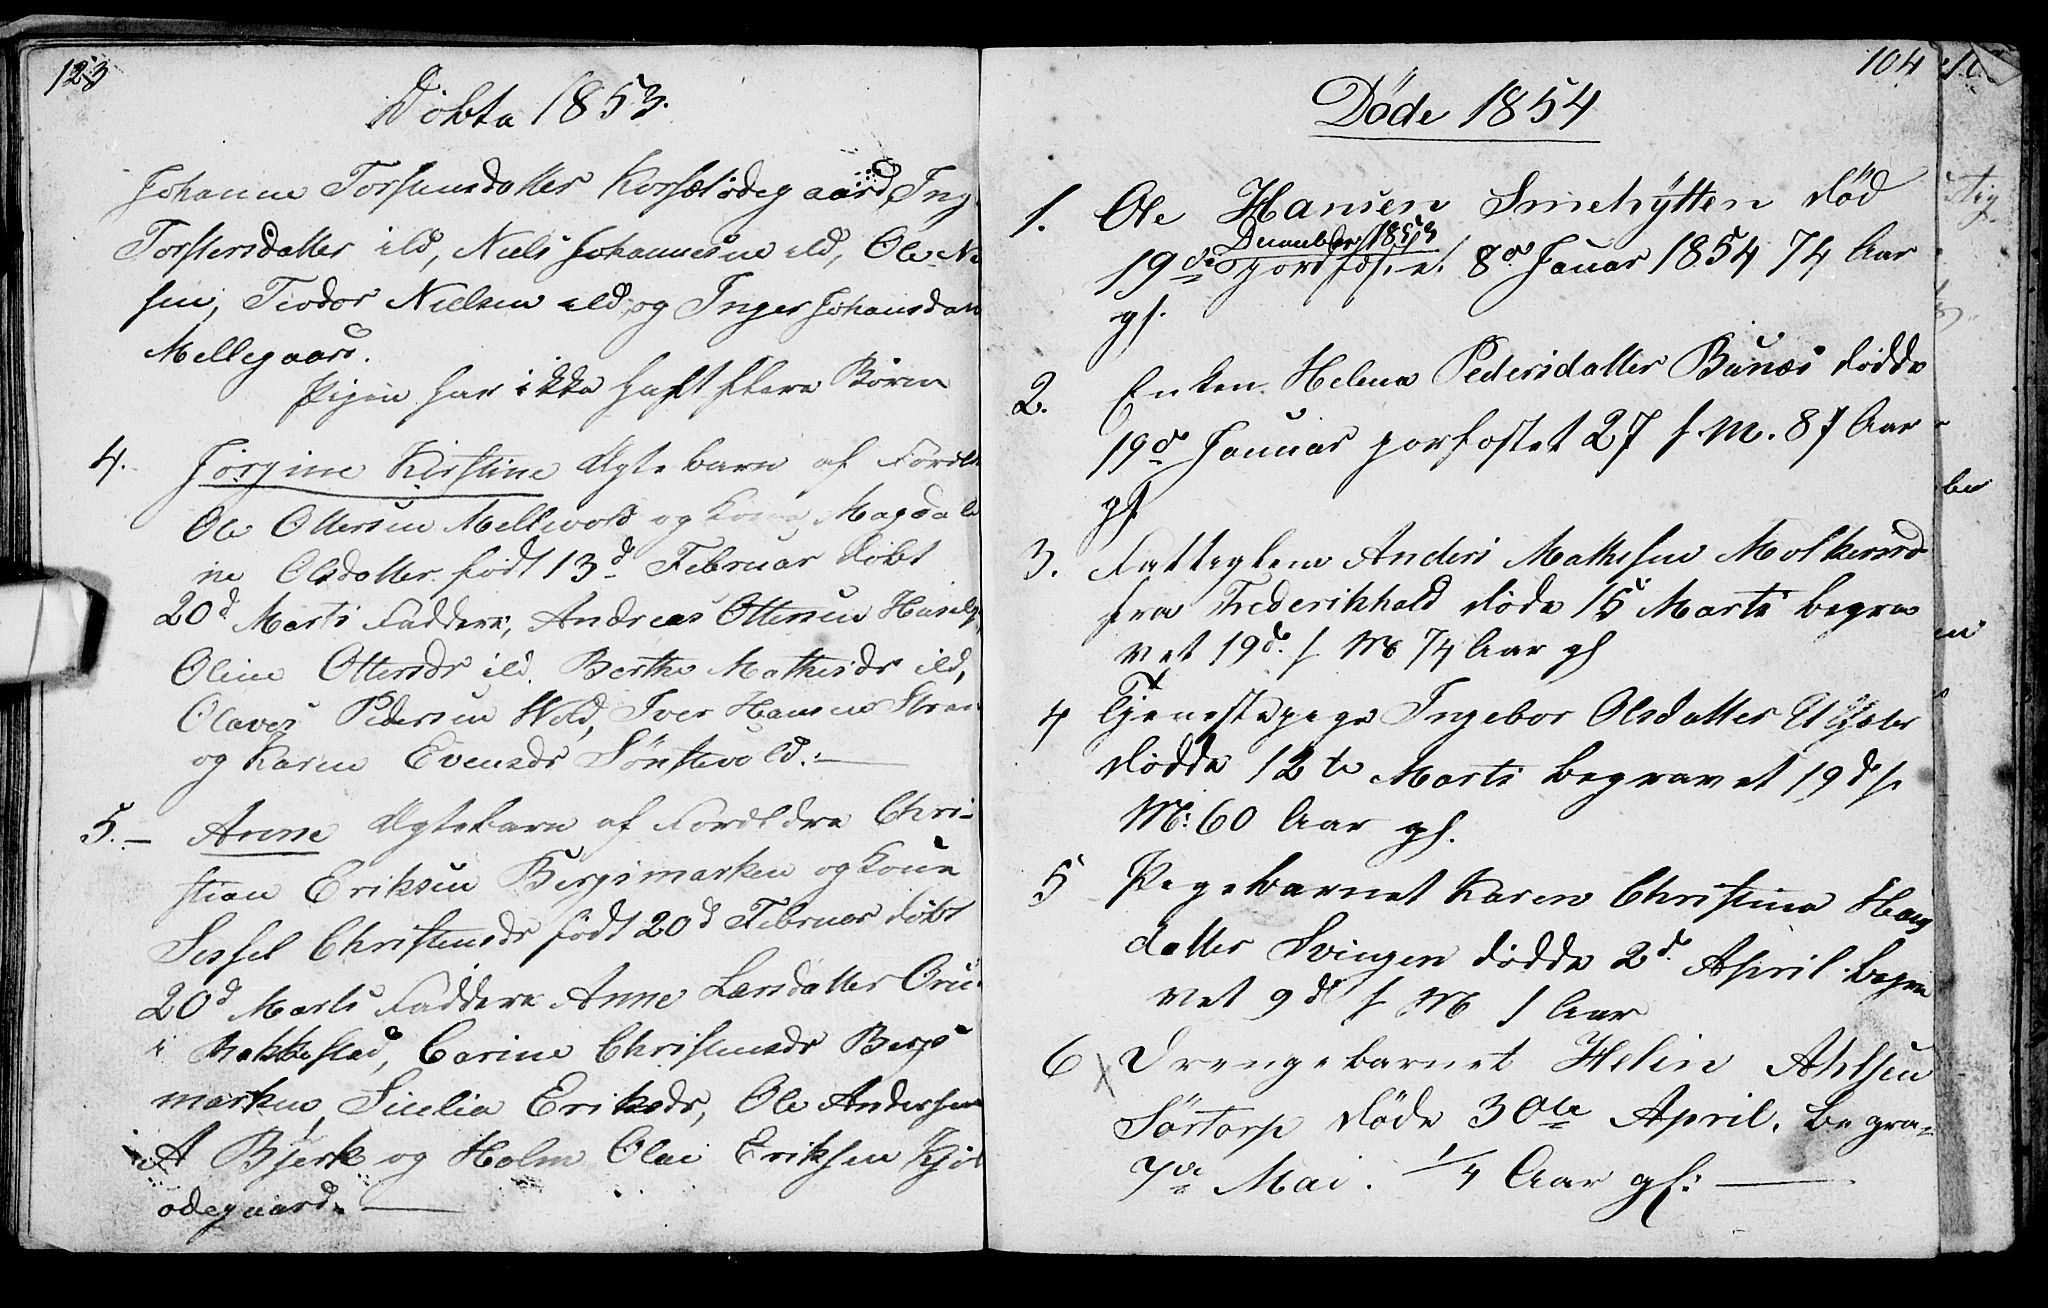 123
Döbte 1853.
Johanne Torstensdatter Korsetødegaard, Ing
Torstensdatter ibd, Niels Johannesen ibd, Ole Ni
sen, Teodor Nielsen ibd, og Inger Johansdatt
Mellegaard.
Pigen har ikke haft flere Börn
4. Jörgine Kirstine Ægtebarn af Foreld
Ole Ottersen Mellwold og Kone Magdale
ne Olsdatter födt 13d Februar döbt
20d Marts Faddere, Andreas Ottersen
Oline Ottersdr ibd, Berthe Mathisdr ibd,
Olaves Pedersen Wold, Iver Hansen
og Karen Evensdr Sönstevold.
5. Anne Ægtebarn af Foreldre Chri-
stian Eriksen Bergsmarken og Kone
Sissel Christensdr födt 20d Februar döbt
20d Marts Faddere Anne Larsdatter
i Rakkestad, Carine Christensdr Bergs
marken, Sicelia Eriksdr, Ole Andersen
Bjerk og Holm Olai Eriksen
ödegaard.
104
Döde 1854
1. Ole Hansen Smehytten död
19de December 1853 jordfæstet 8d Januar 1854 74 Aar
gl.
2. Enken Helene Pedersdatter Bunæs dödde
19d Januar jordfæstet 27 s. M. 87 Aar
gl
3. Fattiglem Anders Mathisen
fra Frederikhald döde 15 Marts begra
vet 19d. s M 74 Aar gl
4 Tjenestepige Ingebor Olsdatter
dödde 12te Marts begravet 19d s.
M: 60 Aar gl.
5 Pigebarnet Karen Christine Hans
datter Svingen dödde 2d. April begra
vet 9d s M 1 Aar
6 Drengebarnet Helin
Sörtorp döde 30te April, begra-
7de Mai. 1/4 Aar gl: